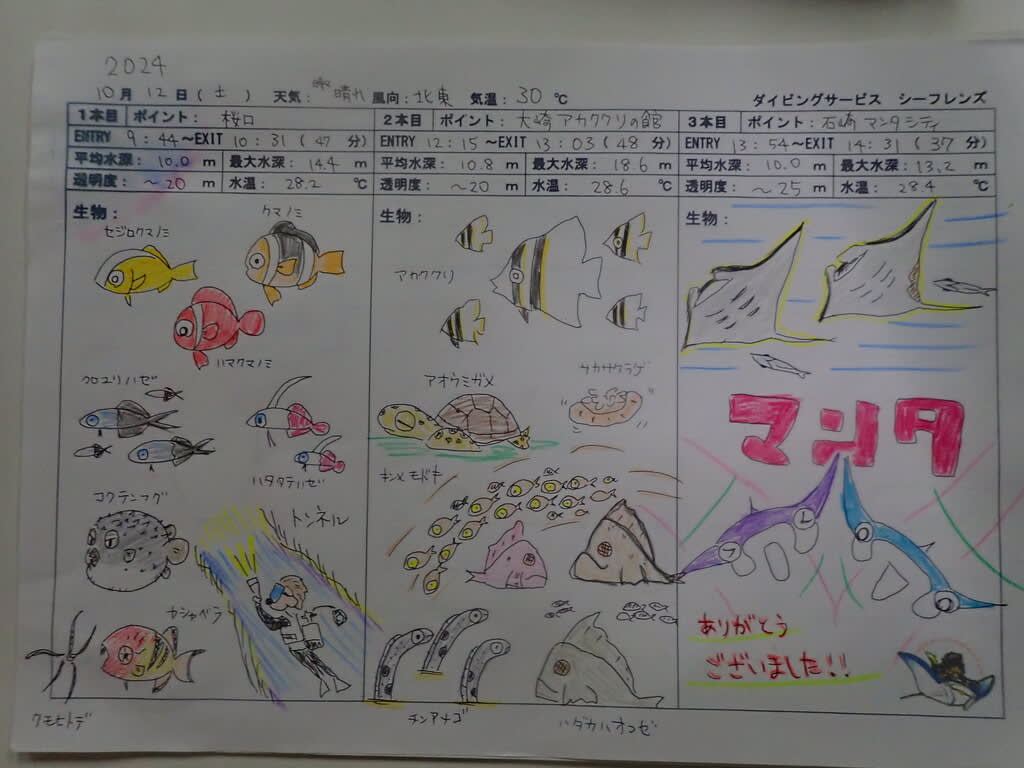 2024
10月 12日(土) 天気: 晴れ 風向: 北東 気温: 30 ℃
ダイビングサービス シーフレンズ
1本目 ポイント: 桜口
ENTRY 9:44～EXIT 10:31 (47 分)
平均水深: 10.0 m 最大水深: 14.4 m
透明度: ～20 m 水温: 28.2 ℃
生物:
クマノミ
セジロクマノミ
ハマクマノミ
クロユリハゼ
ハタタテハゼ
コクテンフグ
トンネル
カシャベラ
クモヒトデ
2本目 ポイント: 大崎アカククリの館
ENTRY 12:15～EXIT 13:03 (48 分)
平均水深: 10.8 m 最大水深: 18.6 m
透明度: ～20 m 水温: 28.6 ℃
生物:
アカククリ
アオウミガメ
サカサクラゲ
キンメモドキ
チンアナゴ
ハダカハオコゼ
3本目 ポイント: 石崎マンタシティ
ENTRY 13:54～EXIT 14:31 (37 分)
平均水深: 10.0 m 最大水深: 13.2 m
透明度: ～25 m 水温: 28.4 ℃
生物:
マンタ
ありがとう
ございました!!